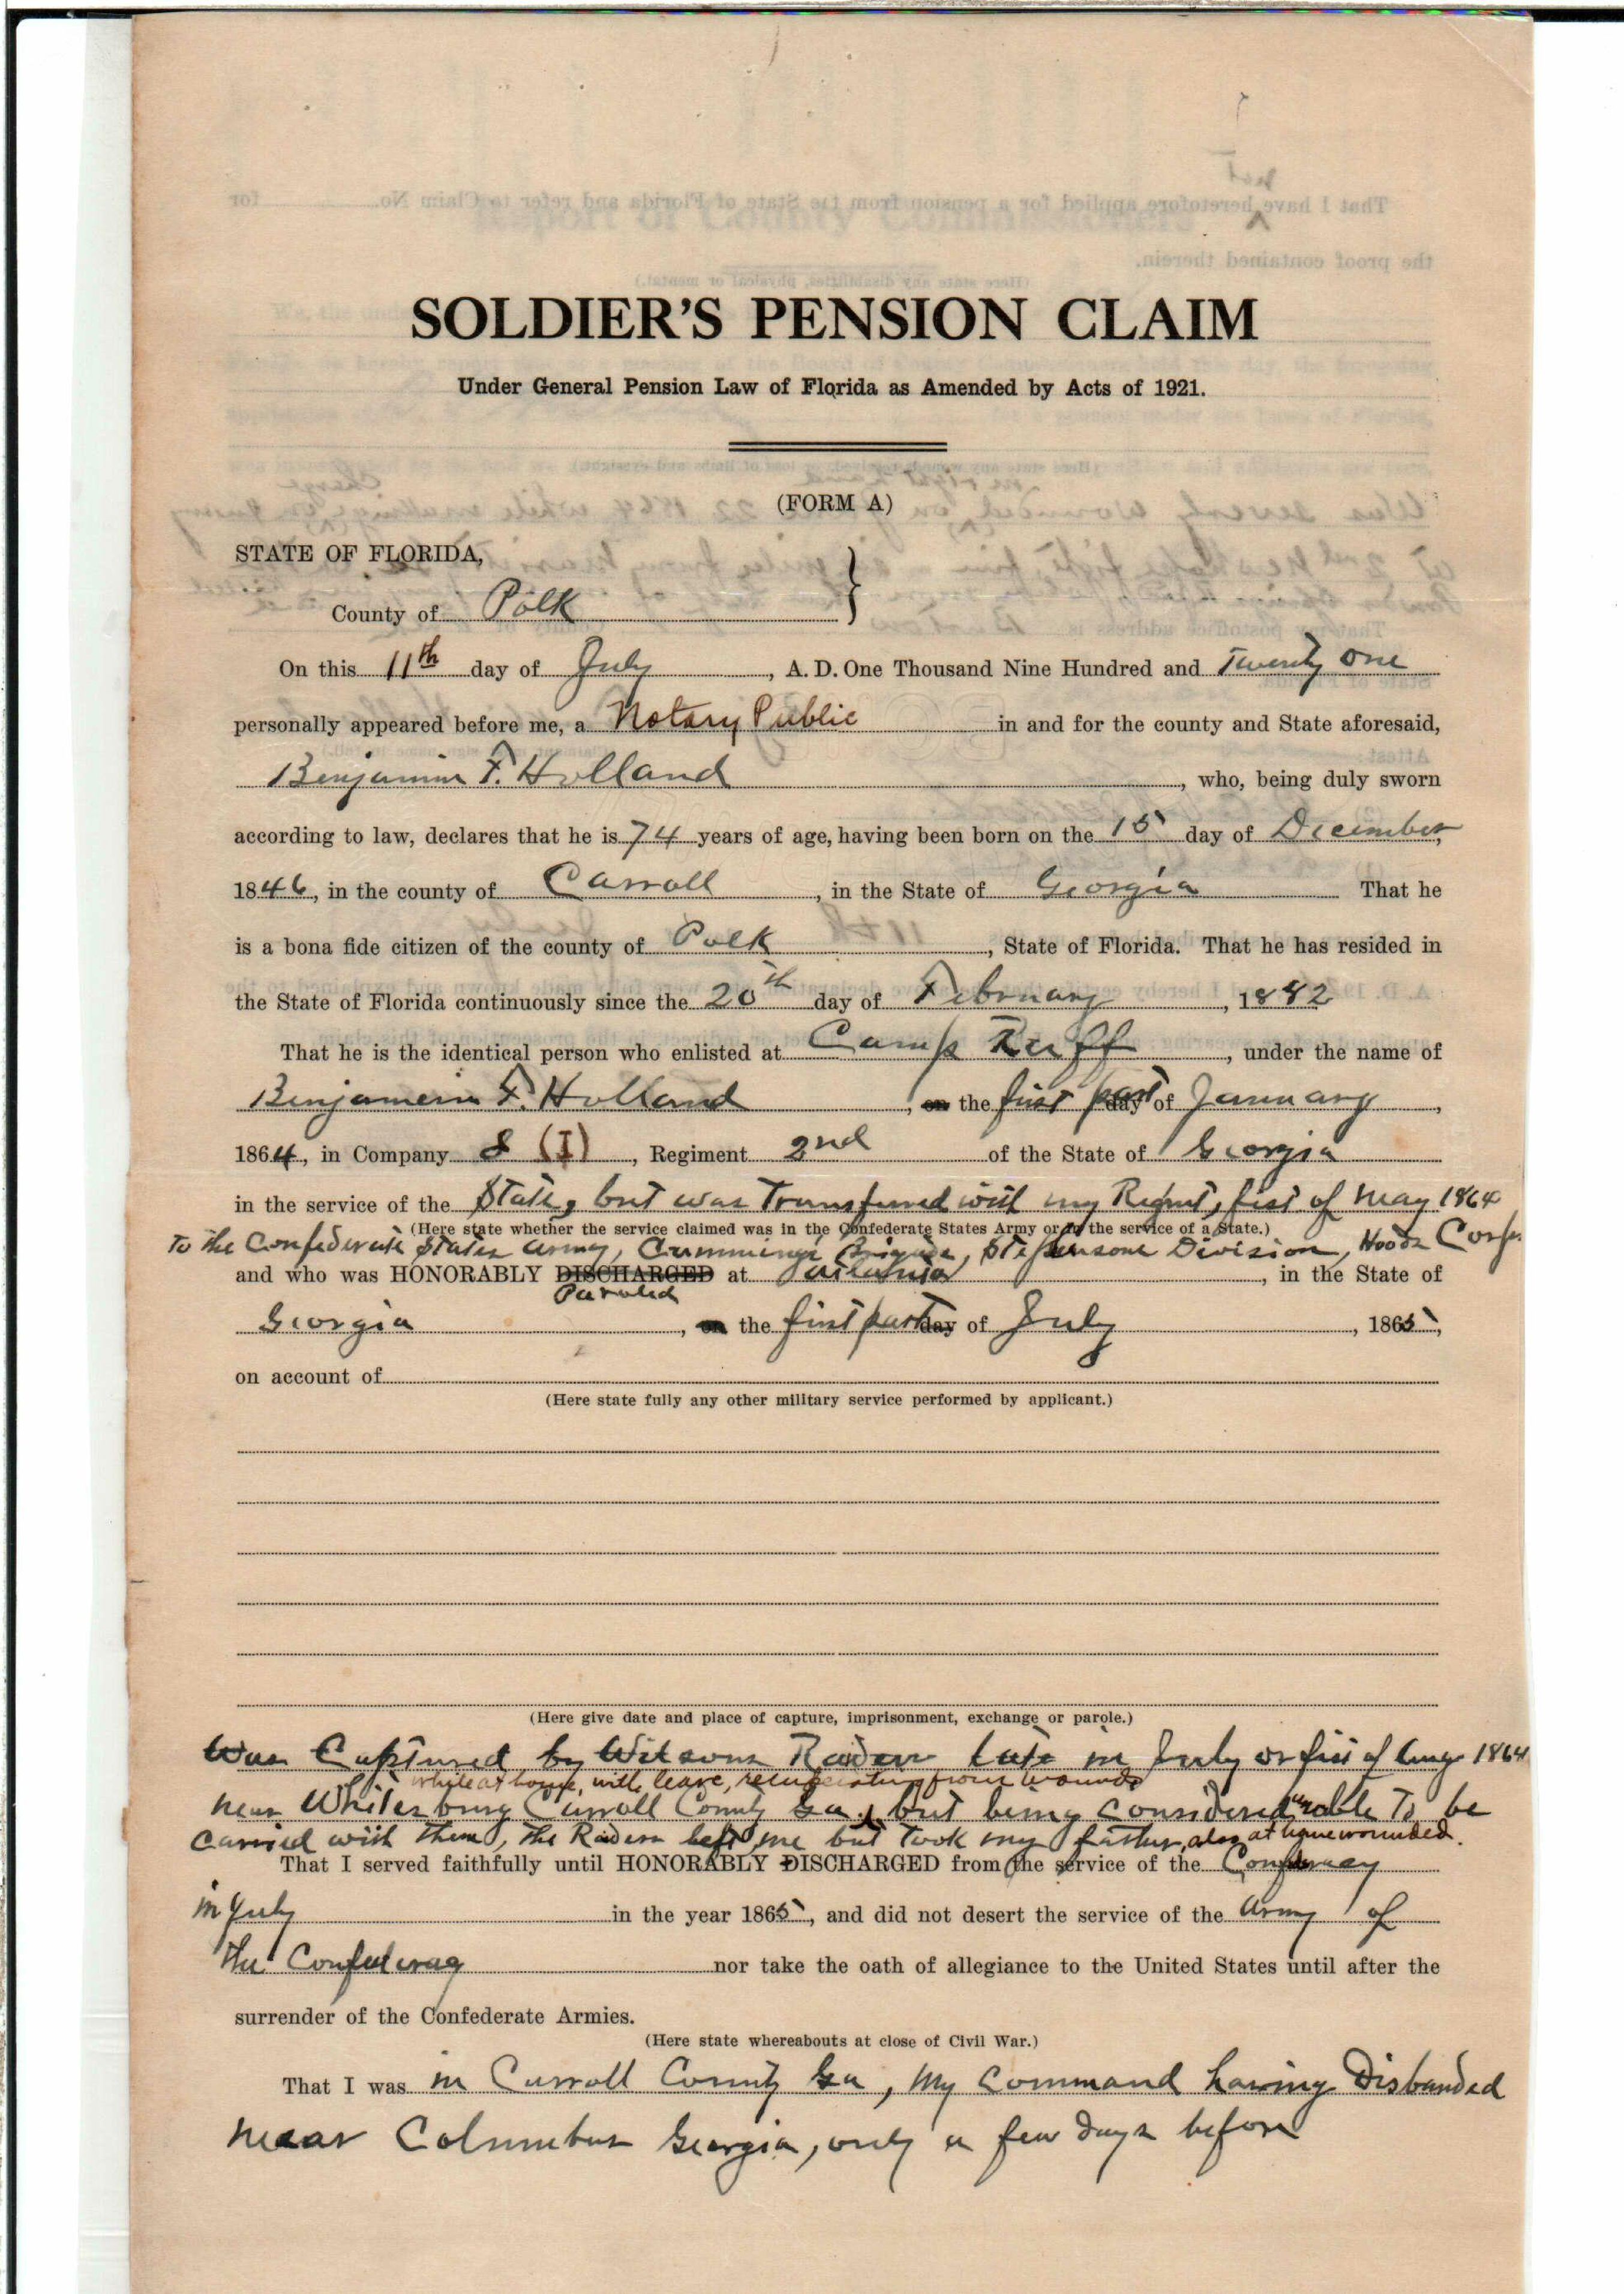 SOLDIER'S PENSION CLAIM
Under General Pension Law of Florida as Amended by Acts of 1921.
(FORM A)
STATE OF FLORIDA,
County of Polk
On this 11th day of July, A. D. One Thousand Nine Hundred and Twenty One
personally appeared before me, a Notary Public in and for the county and State aforesaid,
Benjamin F. Holland, who, being duly sworn
according to law, declares that he is 74 years of age, having been born on the 15 day of December,
1846, in the county of Carroll, in the State of Georgia That he
is a bona fide citizen of the county of Polk, State of Florida. That he has resided in
the State of Florida continuously since the 20th day of February, 1882
That he is the identical person who enlisted at Camp Ruff, under the name of
Benjamin F. Holland, on the first part day of January,
1864, in Company 8 (I), Regiment 2nd of the State of Georgia
in the service of the State, but was Transferred with my Regmt, fist of May 1864
(Here state whether the service claimed was in the Confederate States Army or in the service of a State.)
To the Confederate States Army, Cumming's Brigade, Stephensons Division, Hoods Corps.
and who was HONORABLY DISCHARGED at Atlanta, in the State of
Paroled
Georgia, on the first part day of July, 1865,
on account of
(Here state fully any other military service performed by applicant.)
(Here give date and place of capture, imprisonment, exchange or parole.)
Was Captured by Wilsons Raiders late in July or fist of Aug 1864
while at home, with leave, recuperating from wounds
near Whitesburg Carroll County Ga. but being considered unable To be
carried with them, The Raiders left me but Took my father, also at home wounded.
That I served faithfully until HONORABLY DISCHARGED from the service of the Confederacy
in July in the year 1865, and did not desert the service of the Army of
the Confederacy nor take the oath of allegiance to the United States until after the
surrender of the Confederate Armies.
(Here state whereabouts at close of Civil War.)
That I was in Carroll County Ga, my Command having Disbanded
near Columbus Georgia, only a few days before